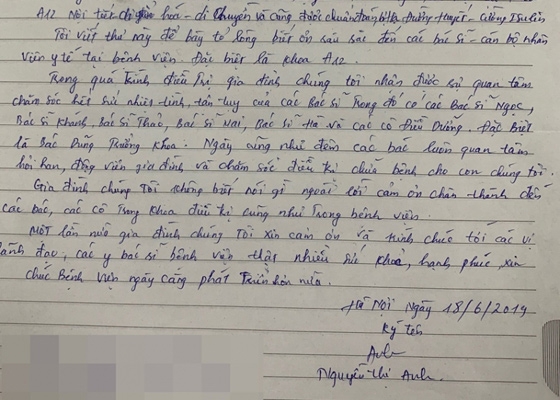 A12 Nội tiết di truyền hóa - di chuyển và cũng được chuẩn đoán bệnh Đường huyết - cường Insulin
Tôi viết thư này để bày tỏ lòng biết ơn sâu sắc đến các bác sĩ - cán bộ nhân
viên y tế tại bệnh viện. Đặc biệt là khoa A12
Trong quá trình điều trị gia đình chúng tôi nhận được sự quan tâm
chăm sóc hết sức nhiệt tình, tận tụy của các Bác sĩ trong đó có các Bác sĩ Ngọc,
Bác sĩ Khánh, Bác sĩ Thảo, Bác sĩ Mai, Bác sĩ Hà và các cô Điều Dưỡng. Đặc Biệt
là Bác Dũng Trưởng Khoa. Ngày cũng như đêm các bác luôn quan tâm
hỏi han, động viên gia đình và chăm sóc điều trị chữa bệnh cho con chúng tôi.
Gia đình chúng Tôi không biết nói gì ngoài lời cảm ơn chân thành đến
các bác, các cô Trong Khoa điều trị cũng như Trong bệnh viện.
Một lần nữa gia đình chúng Tôi xin cảm ơn và kính chúc tới các vị
lãnh đạo, các y bác sĩ bệnh viện thật nhiều sức khỏe, hạnh phúc, xin
chúc Bệnh viện ngày càng phát triển hơn nữa.
Hà Nội Ngày 18/6/2019
Ký tên
Anh
Nguyễn Thị Anh.